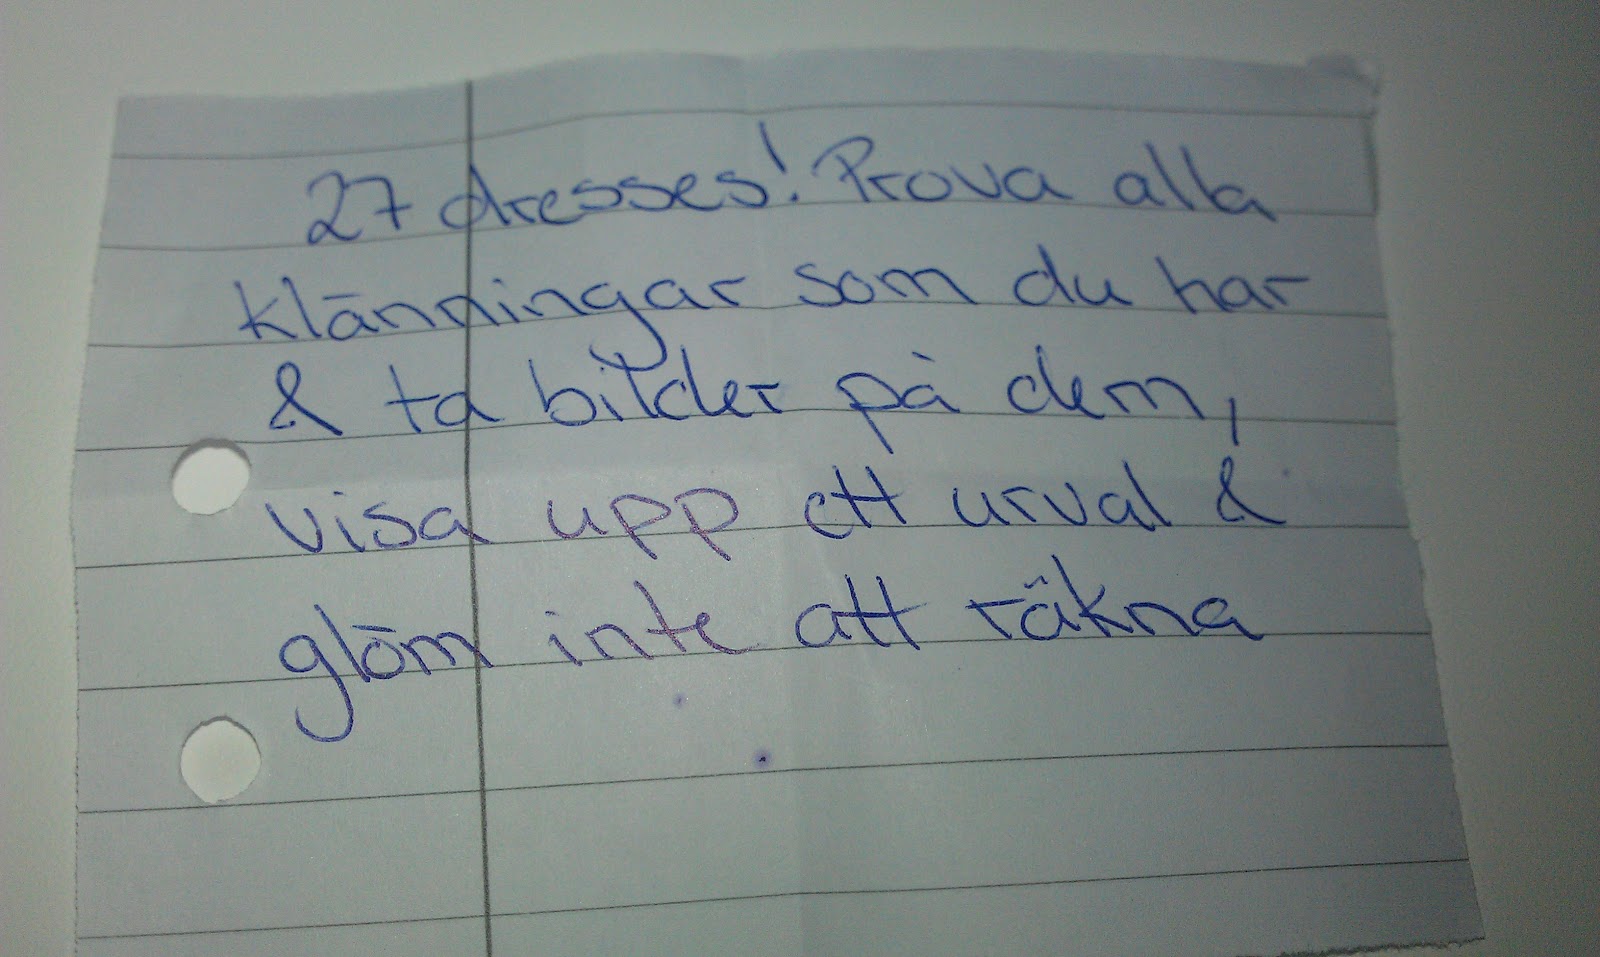 27 dresses! Prova alla
klänningar som du har
& ta bilder på dem,
visa upp ett urval &
glöm inte att räkna